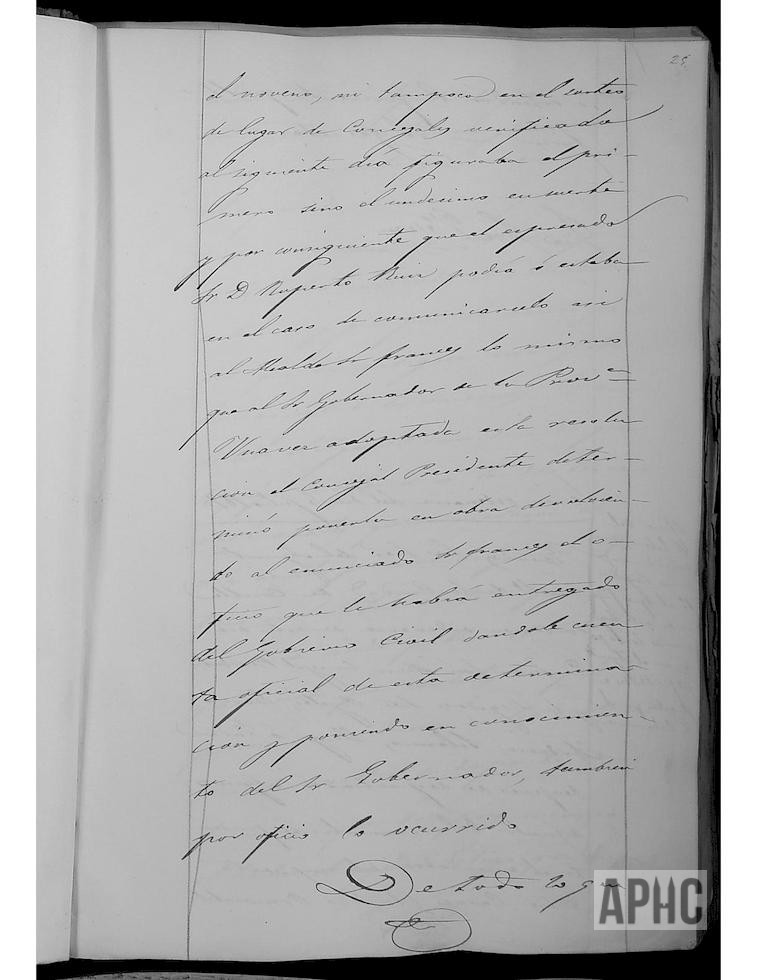 25.
el noveno, ni tampoco en el sorteo
de lugar de Concejales verificado
al siguiente dia figuraba el pri-
mero sino el undecimo en suerte
y por consiguiente que el expresado
Sr D Ruperto Ruiz podia ó estaba
en el caso de comunicarselo asi
al Alcalde Sr frances lo mismo
que al Sr Gobernador de la Provᵃ
Una vez adoptada esta resolu
cion el Concejal Presidente deter-
minó ponerla en obra devolvien-
do al enunciado Sr frances el o-
ficio que le habia entregado
del Gobierno Civil dandole cuen
ta oficial de esta determina-
cion y poniendo en conocimien-
to del Sr Gobernador, tambien
por oficio lo ocurrido
De todo lo que
APHC